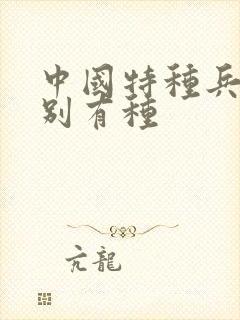 中國特種兵
别有種
亢龍